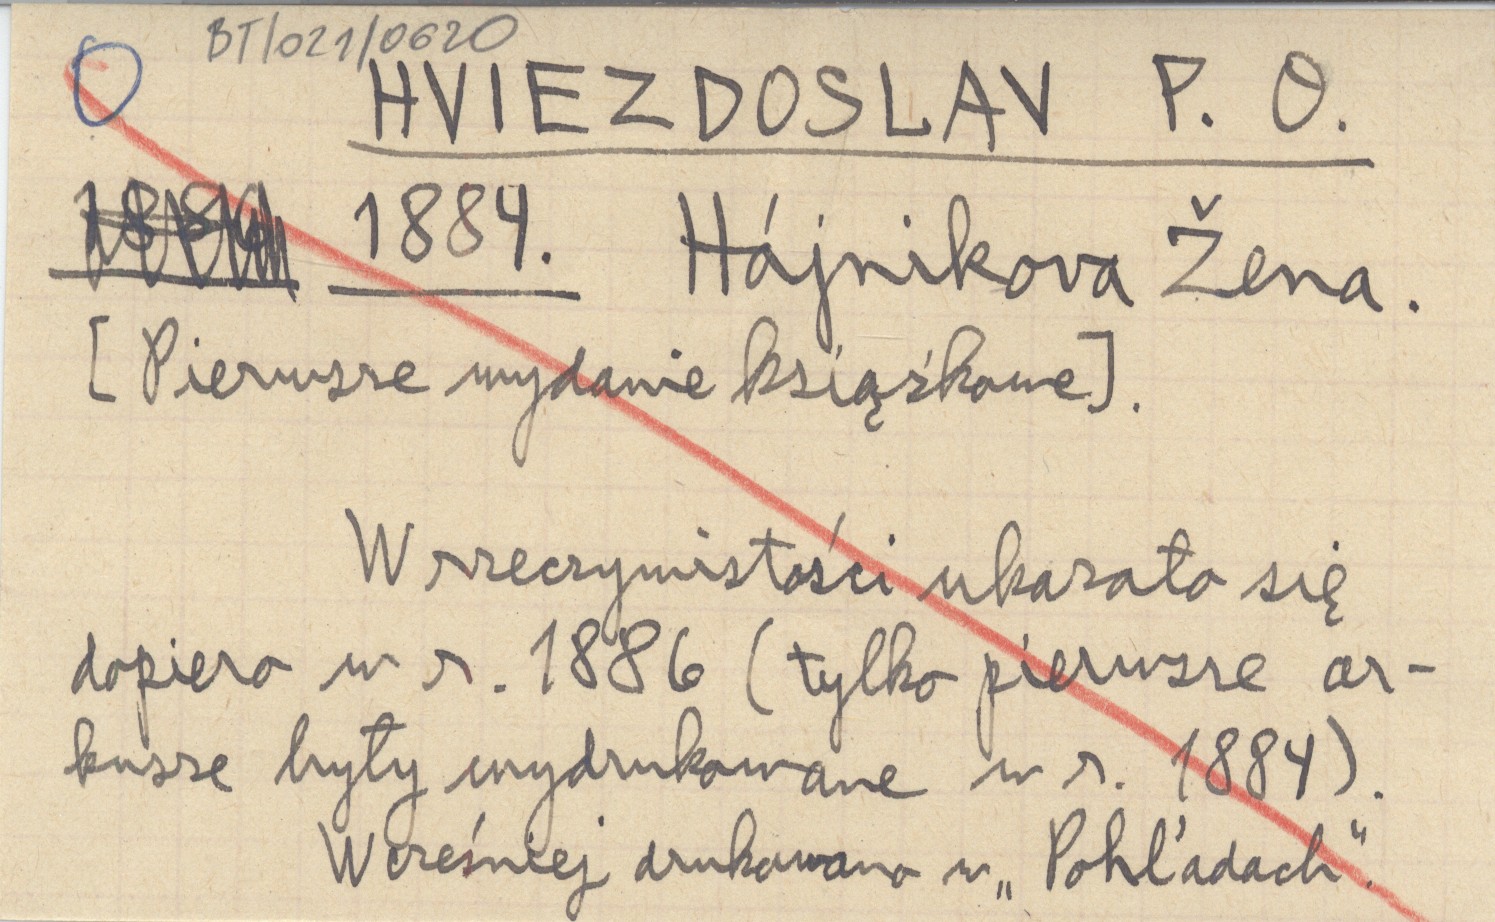 BT/021/0620
HVIEZDOSLAV P. O.
1884. Hájnikova Žena.
[Pierwsze wydanie książkowe].
W rzeczywistości ukazało się
dopiero w r. 1886 (tylko pierwsze ar-
kusze były wydrukowane w r. 1884).
Wcześniej drukowano w „Pohľadach“.